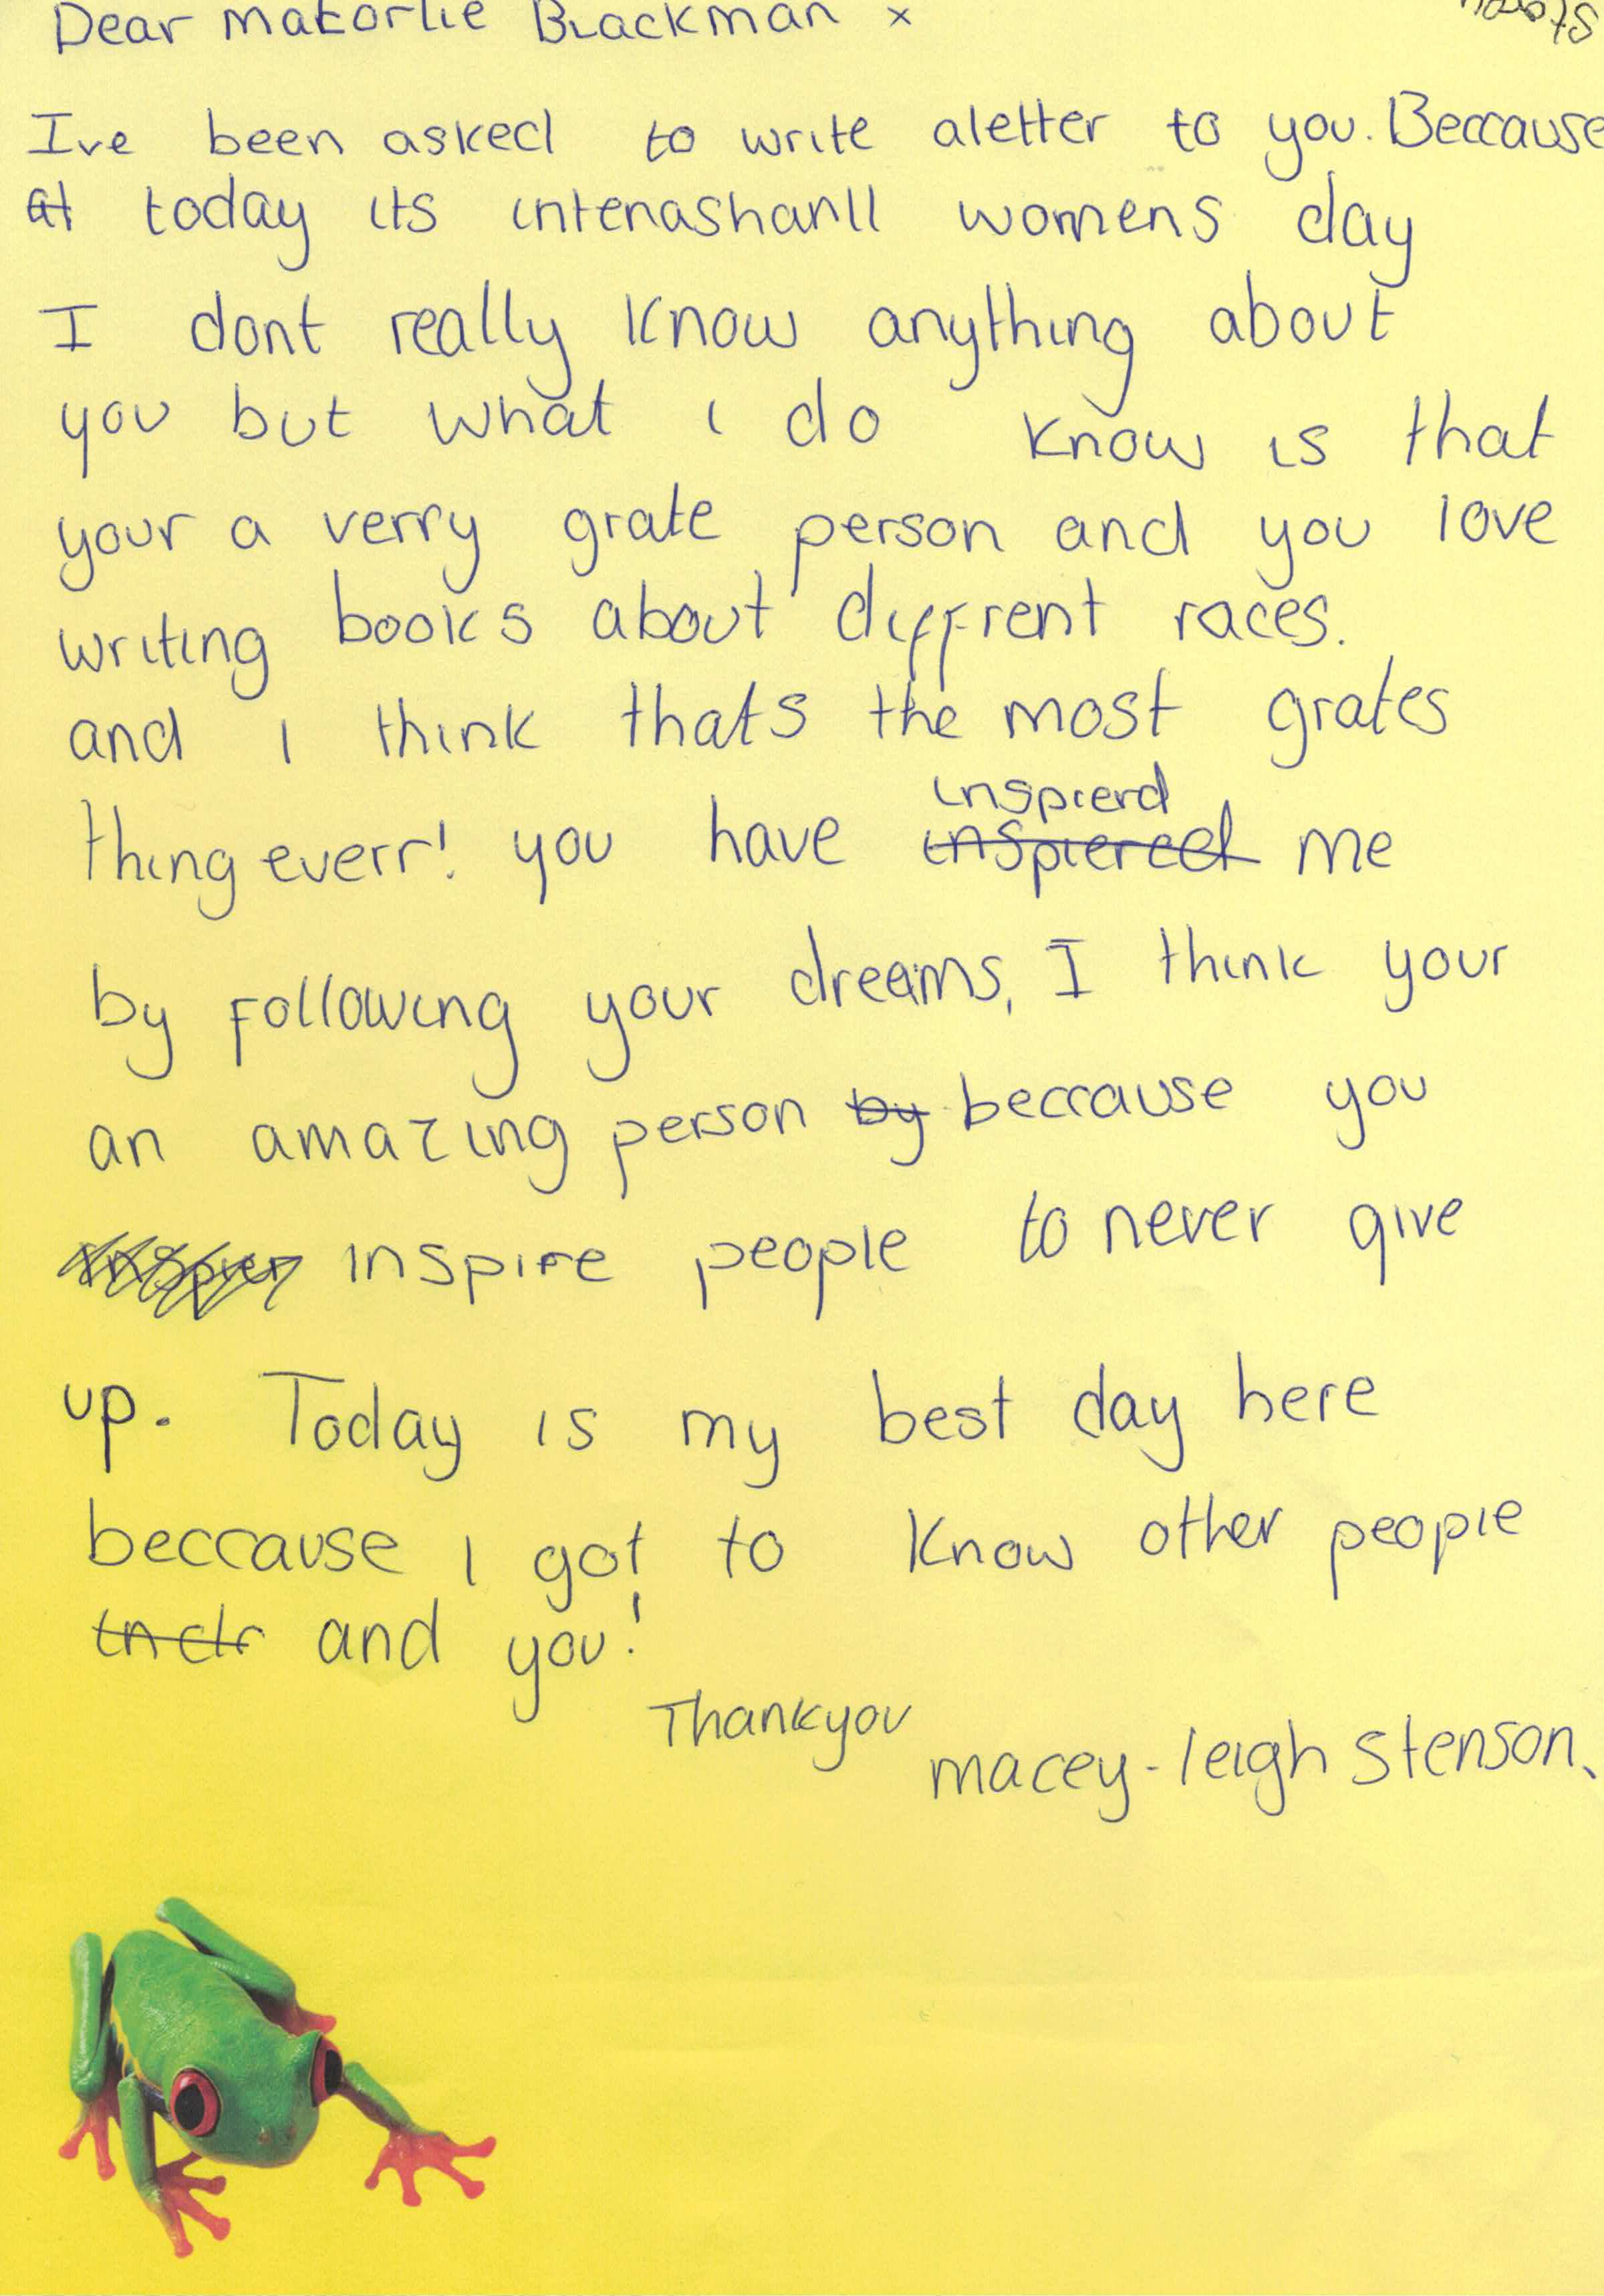 Dear Malorlie Blackman x
Ive been asked to write aletter to you. Beccause
at today its intenashanll womens day
I dont really know anything about
you but what i do know is that
your a verry grate person and you love
writing books about diffrent races.
and i think thats the most grates
inspierd
thing everr! you have inspiereed me
by following your dreams, I think your
an amazing person by beccause you
inspire people to never give
up. Today is my best day here
beccause i got to know other people
and you!
Thankyou
macey-leigh Stenson.